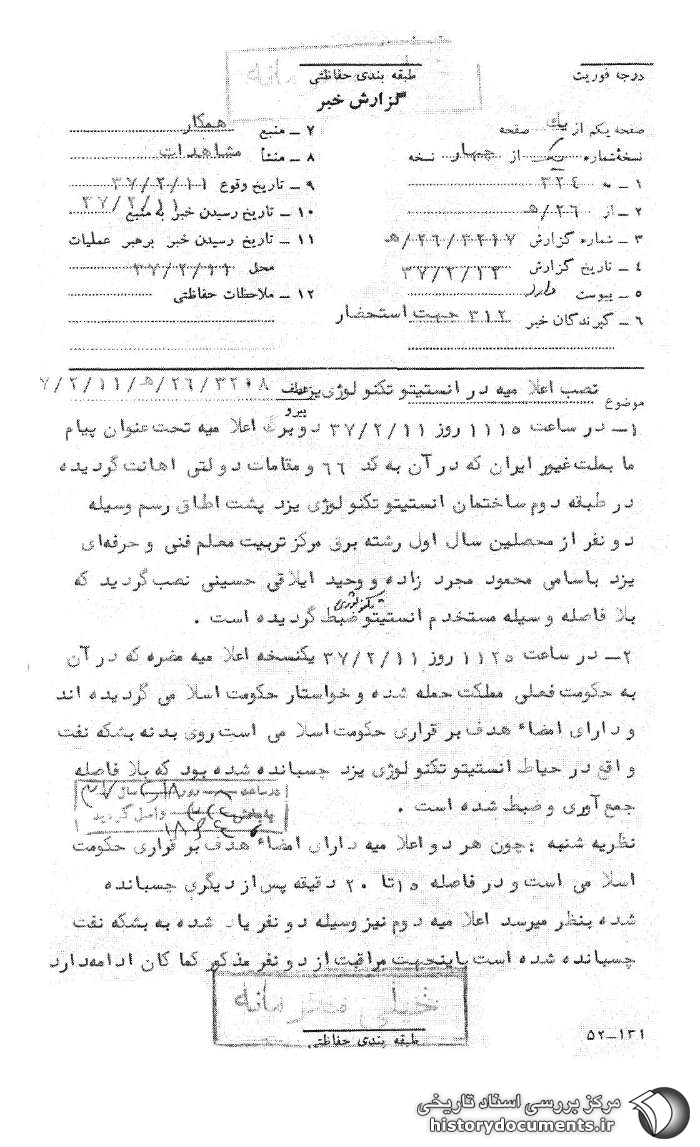 درجه فوریت
طبقه بندی حفاظتی
گزارش خبر
صفحه یکم از یک صفحه
نسخهٔشماره یک از چهار نسخه
۱ ـ به ۳۲۴
۲ ـ از ۲۶/ﻫ
۳ ـ شماره گزارش ۲۶/۳۲۱۷/ﻫ
۴ ـ تاریخ گزارش ۳۷/۲/۱۳
۵ ـ پیوست دارد
۶ ـ گیرندگان خبر ۳۱۲ جهت استحضار
۷ ـ منبع همکار
۸ ـ منشأ مشاهدات
۹ ـ تاریخ وقوع ۳۷/۲/۱۱
۱۰ ـ تاریخ رسیدن خبر به منبع ۳۷/۲/۱۱
۱۱ ـ تاریخ رسیدن خبر برهبر عملیات
محل ۳۷/۲/۱۱
۱۲ ـ ملاحظات حفاظتی
موضوع نصب اعلامیه در انستیتو تکنولوژی یزد
عطف ۲۶/۳۲۰۸/ﻫ ۷/۲/۱۱
پیرو
۱ـ در ساعت ۱۱۱۵ روز ۳۷/۲/۱۱ دو برگ اعلامیه تحت عنوان پیام
ما بملت غیور ایران که در آن به کد ۶۶ و مقامات دولتی اهانت گردیده
در طبقه دوم ساختمان انستیتو تکنولوژی یزد پشت اطاق رسم وسیله
دو نفر از محصلین سال اول رشته برق مرکز تربیت معلم فنی و حرفه‌ای
یزد باسامی محمود مجرد زاده و وحید ایلاقی حسینی نصب گردید که
بلافاصله وسیله مستخدم انستیتو تکنولوژی ضبط گردیده است .
۲ـ در ساعت ۱۱۲۵ روز ۳۷/۲/۱۱ یکنسخه اعلامیه مضره که در آن
به حکومت فعلی مملکت حمله شده و خواستار حکومت اسلامی گردیده اند
و دارای امضاء هدف بر قراری حکومت اسلامی است روی بدنه بشکه نفت
واقع در حیاط انستیتو تکنولوژی یزد چسبانده شده بود که بلافاصله
جمع آوری و ضبط شده است .
در ساعت روز سال
واصل گردید
نظریه شنبه : چون هر دو اعلامیه دارای امضاء هدف بر قراری حکومت
اسلامی است و در فاصله ۱۵ تا ۲۰ دقیقه پس از دیگری چسبانده
شده بنظر میرسد اعلامیه دوم نیز وسیله دو نفر یاد شده به بشکه نفت
چسبانده شده است باینجهت مراقبت از دو نفر مذکور کما کان ادامه دارد
خیلی محرمانه
طبقه بندی حفاظتی
۵۲ـ۱۳۱
مرکز بررسی اسناد تاریخی
historydocuments.ir